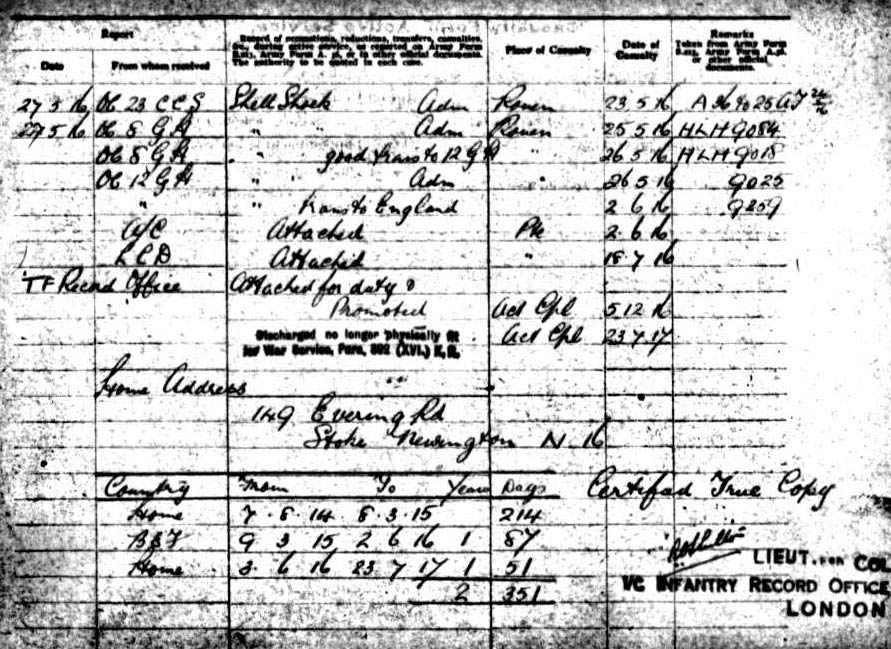 Report
Record of promotions, reductions, transfers, casualties, &c., during active service, as reported on Army Form B.213, Army Form A. 36, or in other official documents. The authority to be quoted in each case.
Place of Casualty
Date of Casualty
Remarks
Taken from Army Form B.213, Army Form A.36, or other official documents.
Date
From whom received
27 5 16 OC 23 CCS Shell Shock Adm Rouen 23 5 16 A 36
27 5 16 OC 8 GH " " Adm Rouen 25 5 16 HLH 9084
OC 8 GH " " good trans to 12 GH " 26 5 16 HLH 9018
OC 12 GH " " Adm " 26 5 16 9025
" " trans to England 2 6 16 9259
Attached 2 6 16
Attached " 18 7 16
TF Record Office Attached for duty &
Promoted Act Cpl 5 12 16
Discharged no longer physically fit Act Cpl 23 7 17
for War Service, Para, 392 (XVI.) K.R.
Home Address
149 Evering Rd
Stoke Newington N 16
Country From To Years Days Certified True Copy
Home 7 8 14 8 3 15 214
BEF 9 3 15 2 6 16 1 87
Home 3 6 16 23 7 17 1 51
2 351
LIEUT. COL
I/C INFANTRY RECORD OFFICE
LONDON